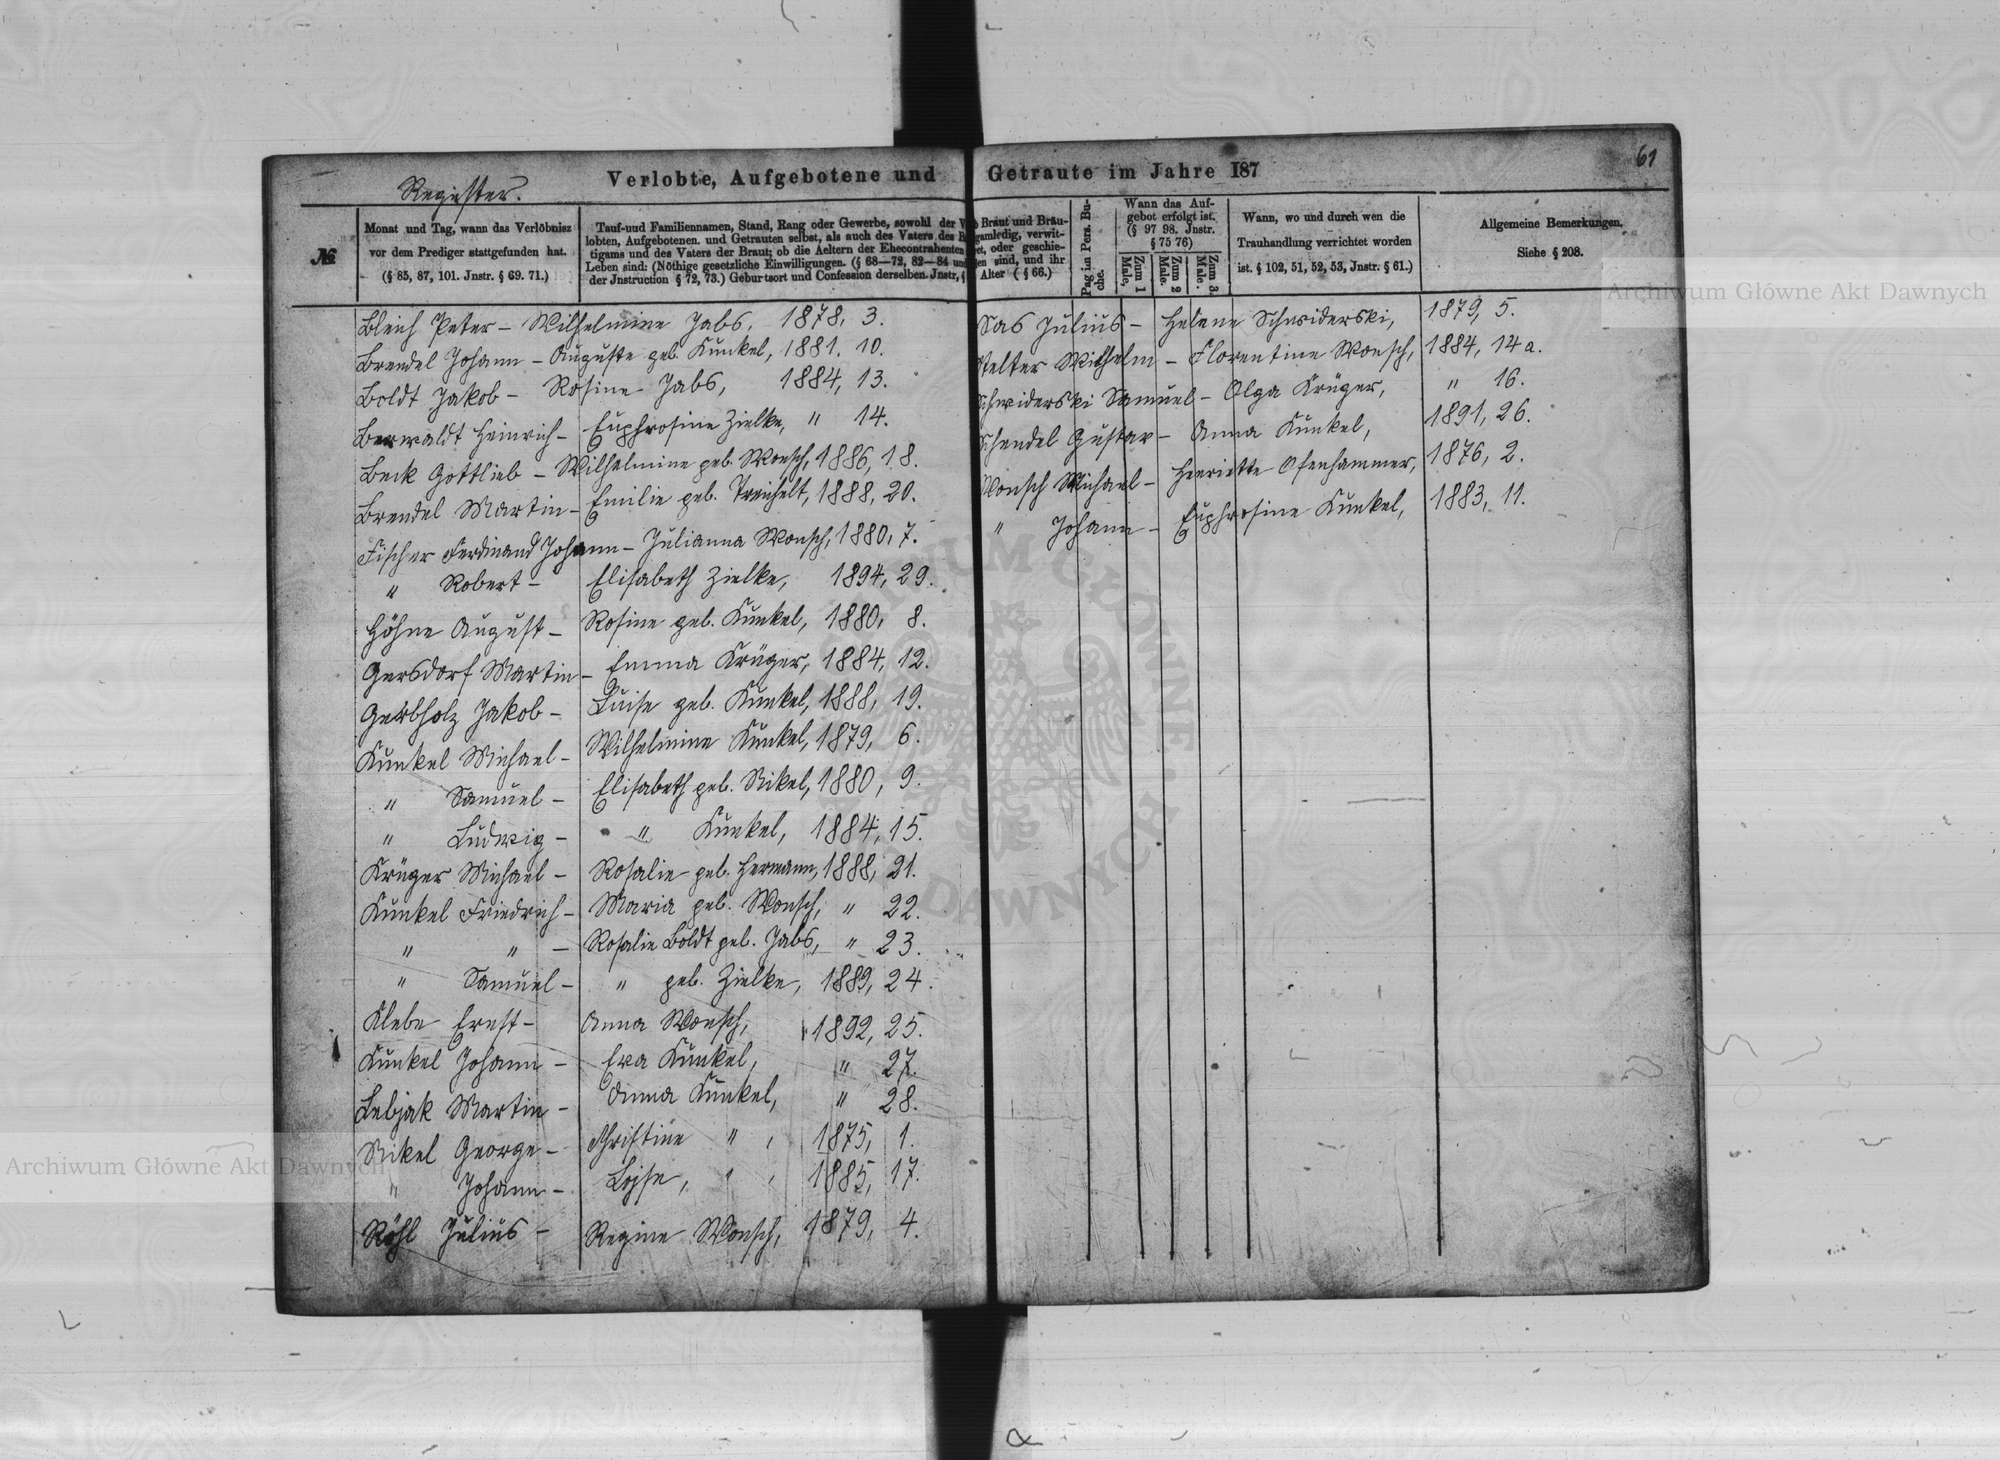 61
Verlobte, Aufgebotene und Getraute im Jahre 187
Register.
№
Monat und Tag, wann das Verlöbnisz
vor dem Prediger stattgefunden hat.
(§ 85, 87, 101. Jnstr. § 69. 71.)
Tauf-und Familiennamen, Stand, Rang oder Gewerbe, sowohl der
lobten, Aufgebotenen. und Getrauten selbst, als auch des Vaters des
tigams und des Vaters der Braut; ob die Aeltern der Ehecontrahenten
Leben sind: (Nöthige gesetzliche Einwilligungen. (§ 68—72, 82—84
der Jnstruction § 72, 73.) Geburtsort und Confession derselben. Jnstr,
Braut und Bräu-
ledig, verwit-
oder geschie-
sind, und ihr
Alter ( § 66.)
Pag im Pers. Bu-
che.
Wann das Auf-
gebot erfolgt ist.
(§ 97 98. Jnstr.
§ 75 76)
Zum 1
Male,
Zum 2
Male.
Zum 3.
Male.
Wann, wo und durch wen die
Trauhandlung verrichtet worden
ist. § 102, 51, 52, 53, Jnstr. § 61.)
Allgemeine Bemerkungen.
Siehe § 208.
Bleich Peter – Wilhelmine Jabs, 1878, 3.
Brendel Johann – Auguste geb. Kunkel, 1881. 10.
Boldt Jakob – Rosine Jabs, 1884, 13.
Berwaldt Heinrich – Euphrosine Zielke, " 14.
Beck Gottlieb – Wilhelmine geb. Wonsch, 1886, 18.
Brendel Martin – Emilie geb. Treichelt, 1888, 20.
Fischer Ferdinand Johann – Julianna Wonsch, 1880, 7.
" Robert – Elisabeth Zielke, 1894, 29.
Höhne August – Rosine geb. Kunkel, 1880, 8.
Gersdorf Martin – Emma Krüger, 1884, 12.
Gerbholz Jakob – Luise geb. Kunkel, 1888, 19.
Kunkel Michael – Wilhelmine Kunkel, 1879, 6.
" Samuel – Elisabeth geb. Nikel, 1880, 9.
" Ludwig – " Kunkel, 1884, 15.
Krüger Michael – Rosalie geb. Hermann, 1888, 21.
Kunkel Friedrich – Maria geb. Wonsch, " 22.
" " – Rosalie Boldt geb. Jabs, " 23.
" Samuel – " geb. Zielke, 1889, 24.
Klebe Ernst – Anna Wonsch, 1892, 25.
Kunkel Johann – Eva Kunkel, " 27.
Lebjak Martin – Anna Kunkel, " 28.
Nikel George – Christine " , 1875, 1.
" Johann – Lojse, " , 1885, 17.
Röhl Julius – Regine Wonsch, 1879, 4.
Sas Julius – Helene Schwiderski, 1879, 5.
Stelter Wilhelm – Florentine Wonsch, 1884, 14a.
Schwiderski Samuel – Olga Krüger, " 16.
Schendel Gustav – Anna Kunkel, 1891, 26.
Wonsch Michael – Henriette Ofenhammer, 1876, 2.
" Johann – Euphrosine Kunkel, 1883, 11.
Archiwum Główne Akt Dawnych
Archiwum Główne Akt Dawnych